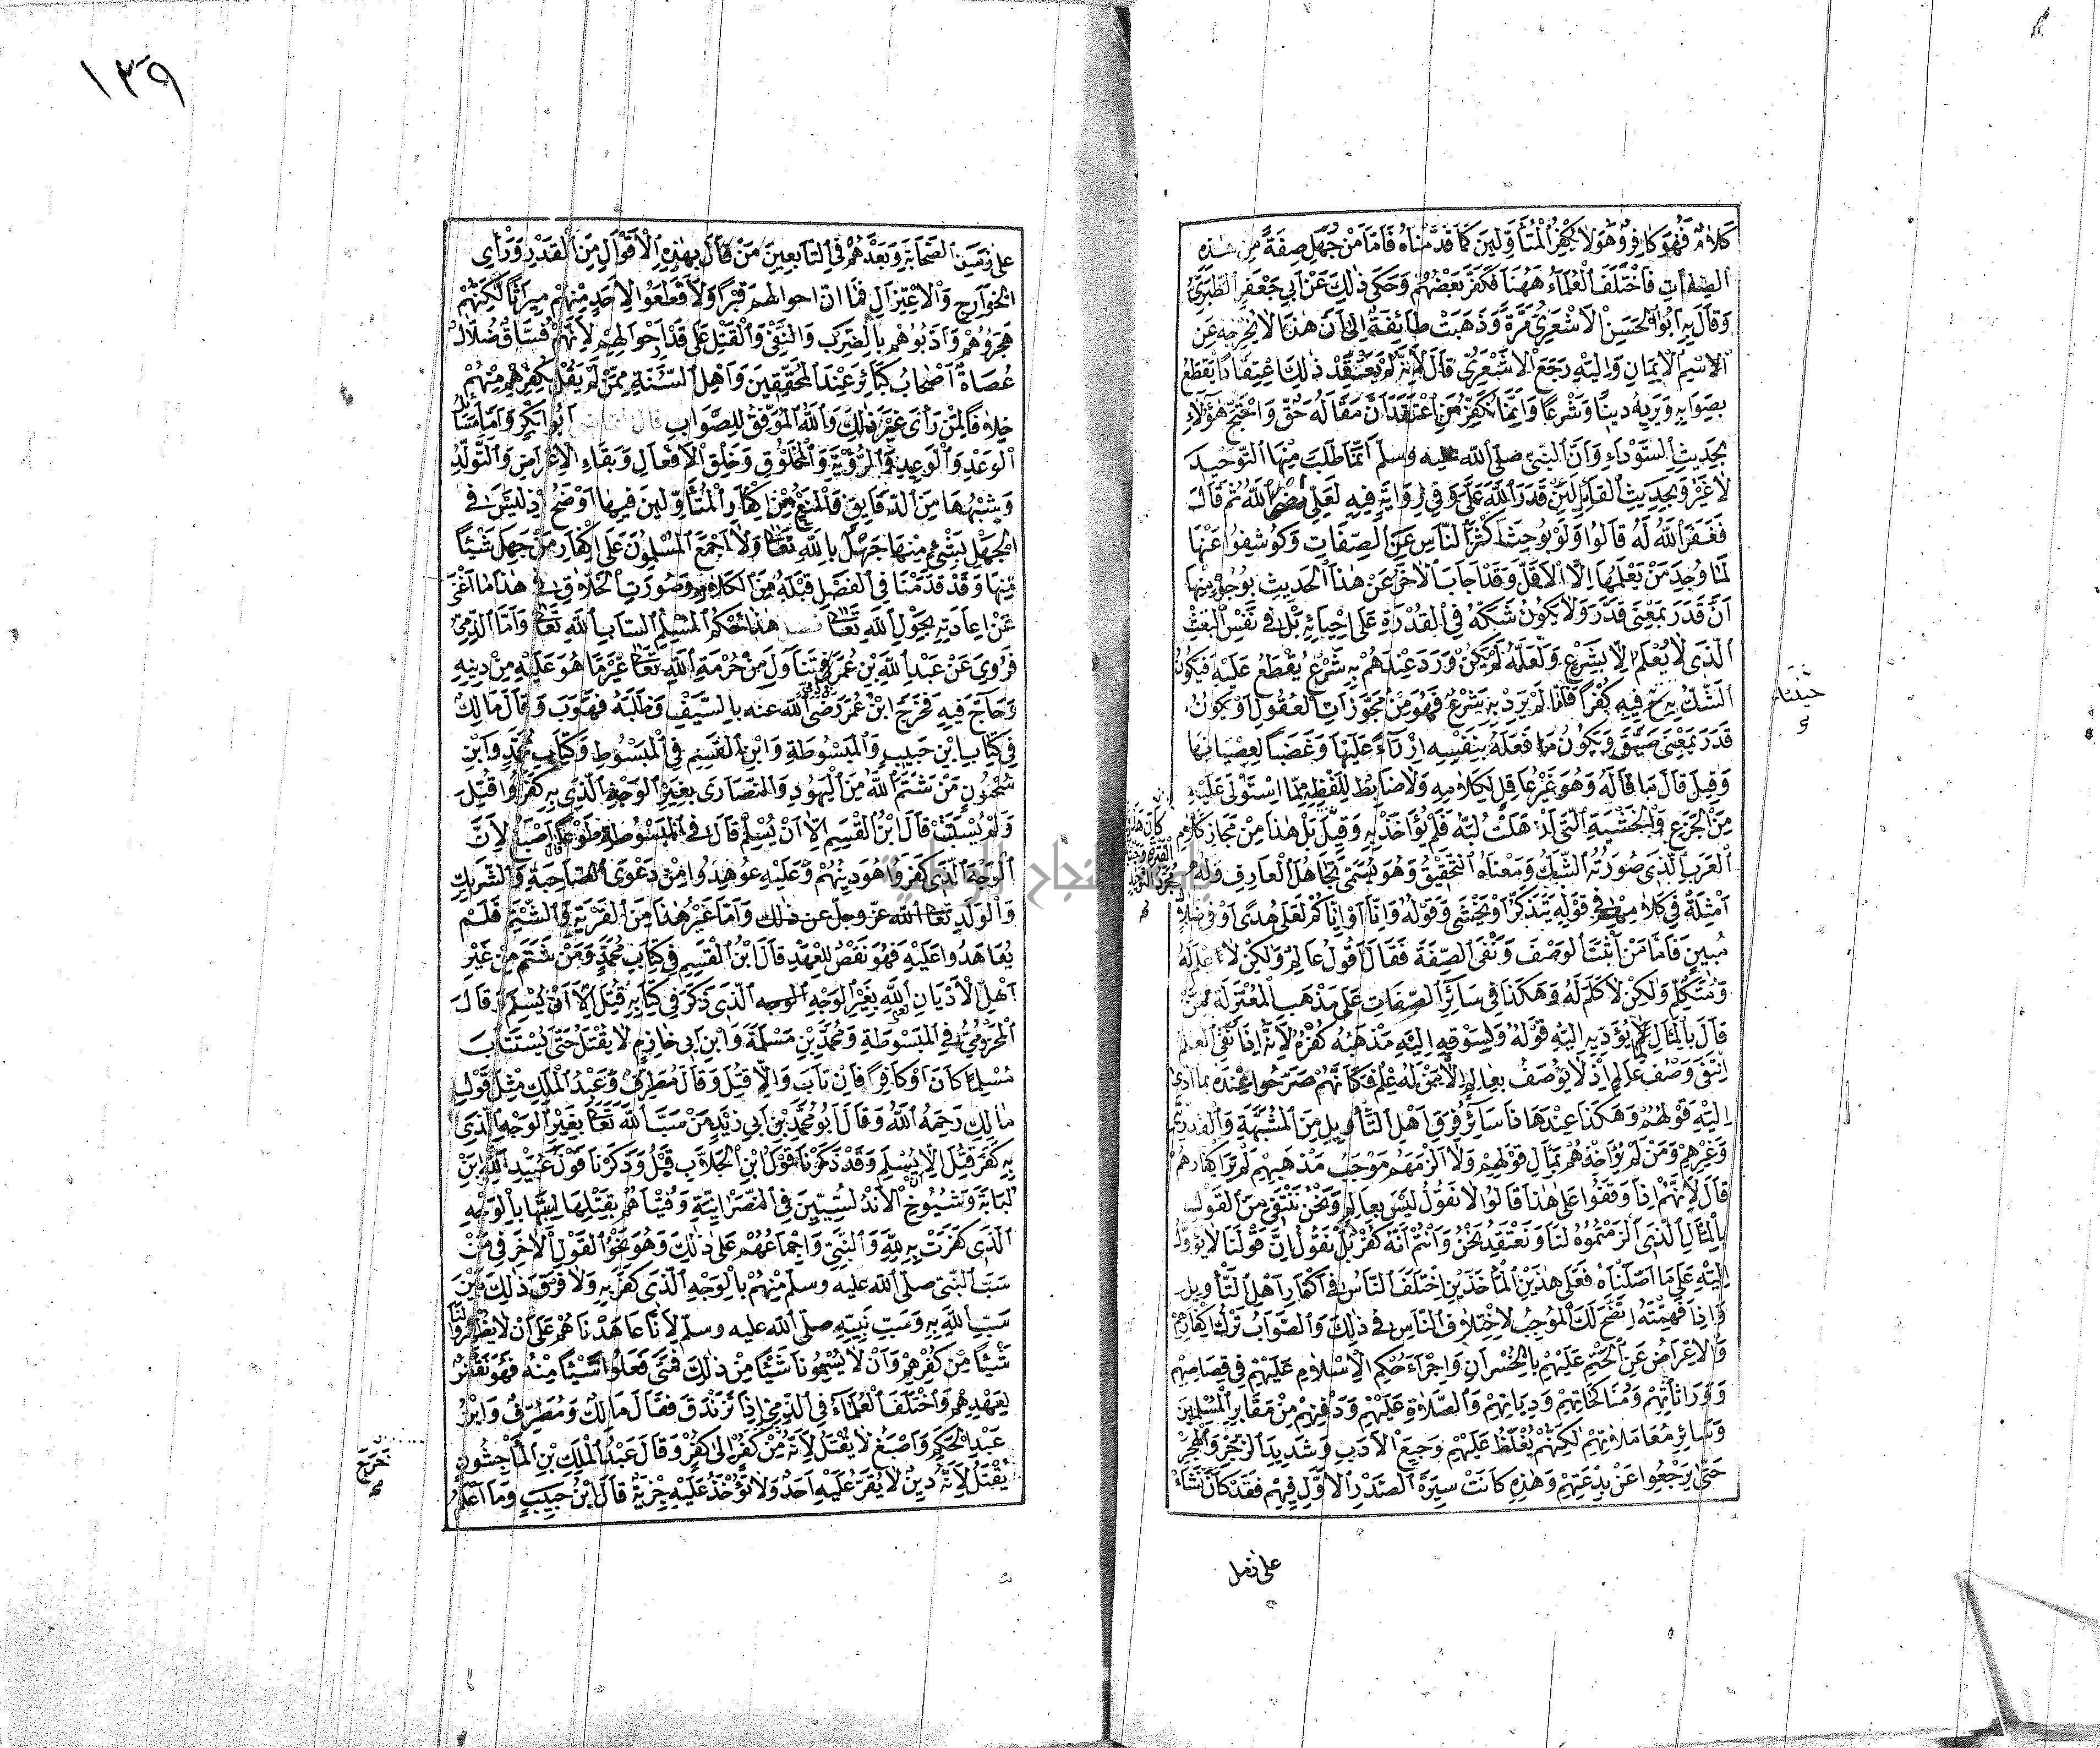 كَلَامٌ فَهُوَ كَافِرٌ وَهُوَ لَا يُكَفِّرُ الْمُتَأَوِّلِينَ كَمَا قَدَّمْنَاهُ فَأَمَّا مَنْ جَهِلَ صِفَةً مِنْ هٰذِهِ
الصِّفَاتِ فَاخْتَلَفَ الْعُلَمَاءُ هٰهُنَا فَكَفَّرَ بَعْضُهُمْ وَحَكَى ذٰلِكَ عَنْ أَبِي جَعْفَرٍ الطَّبَرِيِّ
وَقَالَ بِهِ أَبُو الْحَسَنِ الْأَشْعَرِيُّ مَرَّةً وَذَهَبَتْ طَائِفَةٌ إِلَى أَنَّ هٰذَا لَا يُخْرِجُهُ عَنِ
الْاِسْمِ الْإِيمَانِ وَإِلَيْهِ رَجَعَ الْأَشْعَرِيُّ قَالَ لِأَنَّهُ لَمْ يَعْتَقِدْ ذٰلِكَ اعْتِقَادًا يَقْطَعُ
بِصَوَابِهِ وَيَرَاهُ دِينًا وَشَرْعًا وَإِنَّمَا يُكَفَّرُ مَنِ اعْتَقَدَ أَنَّ مَقَالَهُ حَقٌّ وَاحْتَجَّ هٰؤُلَاءِ
بِحَدِيثِ السَّوْدَاءِ وَأَنَّ النَّبِيَّ صلى الله عليه وسلم إِنَّمَا طَلَبَ مِنْهَا التَّوْحِيدَ
لَا غَيْرُ وَبِحَدِيثِ الْقَائِلِ لَئِنْ قَدَرَ اللهُ عَلَيَّ وَفِي رِوَايَةٍ فِيهِ لَعَلِّي أَضِلُّ اللهَ ثُمَّ قَالَ
فَغَفَرَ اللهُ لَهُ قَالُوا وَلَوْ بُوحِثَ أَكْثَرُ النَّاسِ عَنِ الصِّفَاتِ وَكُوشِفُوا عَنْهَا
لَمَا وُجِدَ مَنْ يَعْلَمُهَا إِلَّا الْأَقَلُّ وَقَدْ أَجَابَ الْآخَرُ عَنْ هٰذَا الْحَدِيثِ بِوُجُوهٍ مِنْهَا
أَنَّ قَدَرَ بِمَعْنَى قَدَّرَ وَلَا يَكُونُ شَكُّهُ فِي الْقُدْرَةِ عَلَى إِحْيَائِهِ بَلْ فِي نَفْسِ الْبَعْثِ
الَّذِي لَا يُعْلَمُ إِلَّا بِشَرْعٍ وَلَعَلَّهُ لَمْ يَكُنْ وَرَدَ عِنْدَهُمْ بِهِ شَرْعٌ يُقْطَعُ عَلَيْهِ فَيَكُونُ
الشَّكُّ بِهِ فِيهِ كُفْرًا فَأَمَّا لَمْ يَرِدْ بِهِ شَرْعٌ فَهُوَ مِنْ مُجَوَّزَاتِ الْعُقُولِ أَوْ يَكُونُ
قَدَرَ بِمَعْنَى ضَيَّقَ وَيَكُونُ مَا فَعَلَهُ بِنَفْسِهِ إِزْرَاءً عَلَيْهَا وَغَضَبًا لِعِصْيَانِهَا
وَقِيلَ قَالَ مَا قَالَهُ وَهُوَ غَيْرُ عَاقِلٍ لِكَلَامِهِ وَلَا ضَابِطٍ لِلَفْظِهِ مِمَّا اسْتَوْلَى عَلَيْهِ
مِنَ الْجَزَعِ وَالْخَشْيَةِ الَّتِي أَذْهَلَتْ لُبَّهُ فَلَمْ يُؤَاخَذْ بِهِ وَقِيلَ بَلْ هٰذَا مِنْ مَجَازِ كَلَامِ
الْعَرَبِ الَّذِي صُورَتُهُ الشَّكُّ وَمَعْنَاهُ التَّحْقِيقُ وَهُوَ يُسَمَّى تَجَاهُلَ الْعَارِفِ وَلَهُ
أَمْثِلَةٌ فِي كَلَامِهِمْ فِي قَوْلِهِ يَتَذَكَّرُ أَوْ يَخْشَى وَقَوْلُهُ وَإِنَّا أَوْ إِيَّاكُمْ لَعَلَى هُدًى أَوْ فِي ضَلَالٍ
مُبِينٍ فَأَمَّا مَنْ أَثْبَتَ الْوَصْفَ وَنَفَى الصِّفَةَ فَقَالَ أَقُولُ عَالِمٌ وَلٰكِنْ لَا عِلْمَ لَهُ
وَمُتَكَلِّمٌ وَلٰكِنْ لَا كَلَامَ لَهُ وَهٰكَذَا فِي سَائِرِ الصِّفَاتِ عَلَى مَذْهَبِ الْمُعْتَزِلَةِ فَمَنْ
قَالَ بِالْمَآلِ لِمَا يُؤَدِّيهِ إِلَيْهِ قَوْلُهُ وَيَسُوقُهُ إِلَيْهِ مَذْهَبُهُ كَفَّرَهُ لِأَنَّهُ إِذَا نَفَى الْعِلْمَ
انْتَفَى وَصْفُ عَالِمٍ إِذْ لَا يُوصَفُ بِعَالِمٍ إِلَّا مَنْ لَهُ عِلْمٌ فَكَأَنَّهُمْ صَرَّحُوا عِنْدَهُ بِمَا أَدَّى
إِلَيْهِ قَوْلُهُمْ وَهٰكَذَا عِنْدَ هٰذَا سَائِرُ فِرَقِ أَهْلِ التَّأْوِيلِ مِنَ الْمُشَبِّهَةِ وَالْقَدَرِيَّةِ
وَغَيْرِهِمْ وَمَنْ لَمْ يُؤَاخِذْهُمْ بِمَآلِ قَوْلِهِمْ وَلَا أَلْزَمَهُمْ مُوجَبَ مَذْهَبِهِمْ لَمْ يَرَ إِكْفَارَهُمْ
قَالَ لِأَنَّهُمْ إِذَا وُقِفُوا عَلَى هٰذَا قَالُوا لَا نَقُولُ لَيْسَ بِعَالِمٍ وَنَحْنُ نَنْتَفِي مِنَ الْقَوْلِ
بِالْمَآلِ الَّذِي أَلْزَمْتُمُوهُ لَنَا وَنَعْتَقِدُ نَحْنُ وَأَنْتُمْ أَنَّهُ كُفْرٌ بَلْ نَقُولُ إِنَّ قَوْلَنَا لَا يَؤُولُ
إِلَيْهِ عَلَى مَا أَصَّلْنَاهُ فَعَلَى هٰذَيْنِ الْمَأْخَذَيْنِ اخْتَلَفَ النَّاسُ فِي إِكْفَارِ أَهْلِ التَّأْوِيلِ
وَإِذَا فَهِمْتَهُ اتَّضَحَ لَكَ الْمُوجِبُ لِاخْتِلَافِ النَّاسِ فِي ذٰلِكَ وَالصَّوَابُ تَرْكُ إِكْفَارِهِمْ
وَالْإِعْرَاضُ عَنِ الْحَتْمِ عَلَيْهِمْ بِالْخُسْرَانِ وَإِجْرَاءُ حُكْمِ الْإِسْلَامِ عَلَيْهِمْ فِي قِصَاصِهِمْ
وَوِرَاثَاتِهِمْ وَمُنَاكَحَاتِهِمْ وَدِيَاتِهِمْ وَالصَّلَاةِ عَلَيْهِمْ وَدَفْنِهِمْ مِنْ مَقَابِرِ الْمُسْلِمِينَ
وَسَائِرِ مُعَامَلَاتِهِمْ لٰكِنَّهُمْ يُغَلَّظُ عَلَيْهِمْ بِوَجِيعِ الْأَدَبِ وَشَدِيدِ الزَّجْرِ وَالْهَجْرِ
حَتَّى يَرْجِعُوا عَنْ بِدْعَتِهِمْ وَهٰذِهِ كَانَتْ سِيرَةَ الصَّدْرِ الْأَوَّلِ فِيهِمْ فَقَدْ كَانَ نَشَأَ
على زمن
١٣٩
عَلَى زَمَنِ الصَّحَابَةِ وَبَعْدَهُمْ فِي التَّابِعِينَ مَنْ قَالَ بِهٰذِهِ الْأَقْوَالِ مِنَ الْقَدَرِ وَرَأْيِ
الْخَوَارِجِ وَالْاِعْتِزَالِ فَمَا أَزَاحُوا لَهُمْ قَبْرًا وَلَا قَطَعُوا لِأَحَدٍ مِنْهُمْ مِيرَاثًا لٰكِنَّهُمْ
هَجَرُوهُمْ وَأَدَّبُوهُمْ بِالضَّرْبِ وَالنَّفْيِ وَالْقَتْلِ عَلَى قَدْرِ أَحْوَالِهِمْ لِأَنَّهُمْ فُسَّاقٌ ضُلَّالٌ
عُصَاةٌ أَصْحَابُ كَبَائِرَ عِنْدَ الْمُحَقِّقِينَ وَأَهْلِ السُّنَّةِ مِمَّنْ لَمْ يَقُلْ بِكُفْرِهِمْ مِنْهُمْ
خِلَافًا لِمَنْ رَأَى غَيْرَ ذٰلِكَ وَاللهُ الْمُوَفِّقُ لِلصَّوَابِ قَالَ أَبُو بَكْرٍ وَأَمَّا مَسَائِلُ
الْوَعْدِ وَالْوَعِيدِ وَالرُّؤْيَةِ وَالْمَخْلُوقِ وَخَلْقِ الْأَفْعَالِ وَبَقَاءِ الْأَعْرَاضِ وَالتَّوَلُّدِ
وَشِبْهِهَا مِنَ الدَّقَايِقِ فَالْمَنْعُ مِنْ إِكْفَارِ الْمُتَأَوِّلِينَ فِيهَا أَوْضَحُ إِذْ لَيْسَ فِي
الْجَهْلِ بِشَيْءٍ مِنْهَا جَهْلٌ بِاللهِ تَعَالَى وَلَا أَجْمَعَ الْمُسْلِمُونَ عَلَى إِكْفَارِ مَنْ جَهِلَ شَيْئًا
مِنْهَا وَقَدْ قَدَّمْنَا فِي الْفَصْلِ قَبْلَهُ مِنَ الْكَلَامِ وَصُورَةِ الْخِلَافِ فِي هٰذَا مَا أَغْنَى
عَنْ إِعَادَتِهِ بِحَوْلِ اللهِ تَعَالَى هٰذَا حُكْمُ الْمُسْلِمِ السَّابِّ لِلهِ تَعَالَى وَأَمَّا الذِّمِّيُّ
فَرُوِيَ عَنْ عَبْدِ اللهِ بْنِ عُمَرَ فِي ذِمِّيٍّ تَنَاوَلَ مِنْ حُرْمَةِ اللهِ تَعَالَى غَيْرَ مَا هُوَ عَلَيْهِ مِنْ دِينِهِ
وَحَاجَّ فِيهِ فَخَرَجَ ابْنُ عُمَرَ رَضِيَ الله عنه بِالسَّيْفِ فَطَلَبَهُ فَهَرَبَ وَقَالَ مَالِكٌ
فِي كِتَابِ ابْنِ حَبِيبٍ وَالْمَبْسُوطَةِ وَابْنُ الْقَسِمِ فِي الْمَبْسُوطِ وَكِتَابِ مُحَمَّدٍ وَابْنِ
سُحْنُونٍ مَنْ شَتَمَ اللهَ مِنَ الْيَهُودِ وَالنَّصَارَى بِغَيْرِ الْوَجْهِ الَّذِي بِهِ كَفَرُوا قُتِلَ
وَلَمْ يُسْتَتَبْ قَالَ ابْنُ الْقَسِمِ إِلَّا أَنْ يُسْلِمَ قَالَ فِي الْمَبْسُوطَةِ طَوْعًا قَالَ أَصْبَغُ لِأَنَّ
الْوَجْهَ الَّذِي كَفَرُوا هُوَ دِينُهُمْ وَعَلَيْهِ عُوهِدُوا مِنْ دَعْوَى الصَّاحِبَةِ وَالشَّرِيكِ
وَالْوَلَدِ تَعَالَى الله عَزَّ وَجَلَّ عَنْ ذٰلِكَ وَأَمَّا غَيْرُ هٰذَا مِنَ الْفِرْيَةِ وَالشَّتْمِ فَلَمْ
يُعَاهَدُوا عَلَيْهِ فَهُوَ نَقْضٌ لِلْعَهْدِ قَالَ ابْنُ الْقَسِمِ فِي كِتَابِ مُحَمَّدٍ وَمَنْ شَتَمَ مِنْ غَيْرِ
أَهْلِ الْأَدْيَانِ اللهَ تعالى بِغَيْرِ الْوَجْهِ الوجه الَّذِي ذَكَرَ فِي كِتَابِهِ قُتِلَ إِلَّا أَنْ يُسْلِمَ وَقَالَ
الْمَخْزُومِيُّ فِي الْمَبْسُوطَةِ وَمُحَمَّدُ بْنُ مَسْلَمَةَ وَابْنُ أَبِي حَازِمٍ لَا يُقْتَلُ حَتَّى يُسْتَتَابَ
مُسْلِمًا كَانَ أَوْ كَافِرًا فَإِنْ تَابَ وَإِلَّا قُتِلَ وَقَالَ مُطَرِّفٌ وَعَبْدُ الْمَلِكِ مِثْلَ قَوْلِ
مَالِكٍ رَحِمَهُ اللهُ وَقَالَ أَبُو مُحَمَّدِ بْنُ أَبِي زَيْدٍ مَنْ سَبَّ اللهَ تَعَالَى بِغَيْرِ الْوَجْهِ الَّذِي
بِهِ كَفَرَ قُتِلَ إِلَّا أَنْ يُسْلِمَ وَقَدْ ذَكَرْنَا قَوْلَ ابْنِ الْجَلَّابِ قَبْلُ وَذَكَرْنَا قَوْلَ عُبَيْدِ اللهِ بْنِ
لُبَابَةَ وَشُيُوخِ الْأَنْدَلُسِيِّينَ فِي النَّصْرَانِيَّةِ وَفُتْيَاهُمْ بِقَتْلِهَا لِسَبِّهَا بِالْوَجْهِ
الَّذِي كَفَرَتْ بِهِ لِلهِ وَالنَّبِيِّ وَإِجْمَاعُهُمْ عَلَى ذٰلِكَ وَهُوَ نَحْوُ الْقَوْلِ الْآخَرِ فِي مَنْ
سَبَّ النَّبِيَّ صلى الله عليه وسلم مِنْهُمْ بِالْوَجْهِ الَّذِي كَفَرَ بِهِ وَلَا فَرْقَ ذٰلِكَ بَيْنَ
سَبِّ اللهِ بِهِ وَسَبِّ نَبِيِّهِ صلى الله عليه وسلم لِأَنَّا عَاهَدْنَاهُمْ عَلَى أَنْ لَا يُظْهِرُوا لَنَا
شَيْئًا مِنْ كُفْرِهِمْ وَأَنْ لَا يُسْمِعُونَا شَيْئًا مِنْ ذٰلِكَ فَمَتَى فَعَلُوا شَيْئًا مِنْهُ فَهُوَ نَقْضٌ
لِعَهْدِهِمْ وَاخْتَلَفَ الْعُلَمَاءُ فِي الذِّمِّيِّ إِذَا تَزَنْدَقَ فَقَالَ مَالِكٌ وَمُطَرِّفٌ وَابْنُ
عَبْدِ الْحَكَمِ وَأَصْبَغُ لَا يُقْتَلُ لِأَنَّهُ مِنْ كُفْرٍ إِلَى كُفْرٍ وَقَالَ عَبْدُ الْمَلِكِ بْنُ الْمَاجِشُونِ
يُقْتَلُ لِأَنَّهُ دِينٌ لَا يُقَرُّ عَلَيْهِ أَحَدٌ وَلَا تُؤْخَذُ عَلَيْهِ جِزْيَةٌ قَالَ ابْنُ حَبِيبٍ وَمَا أَعْلَمُ